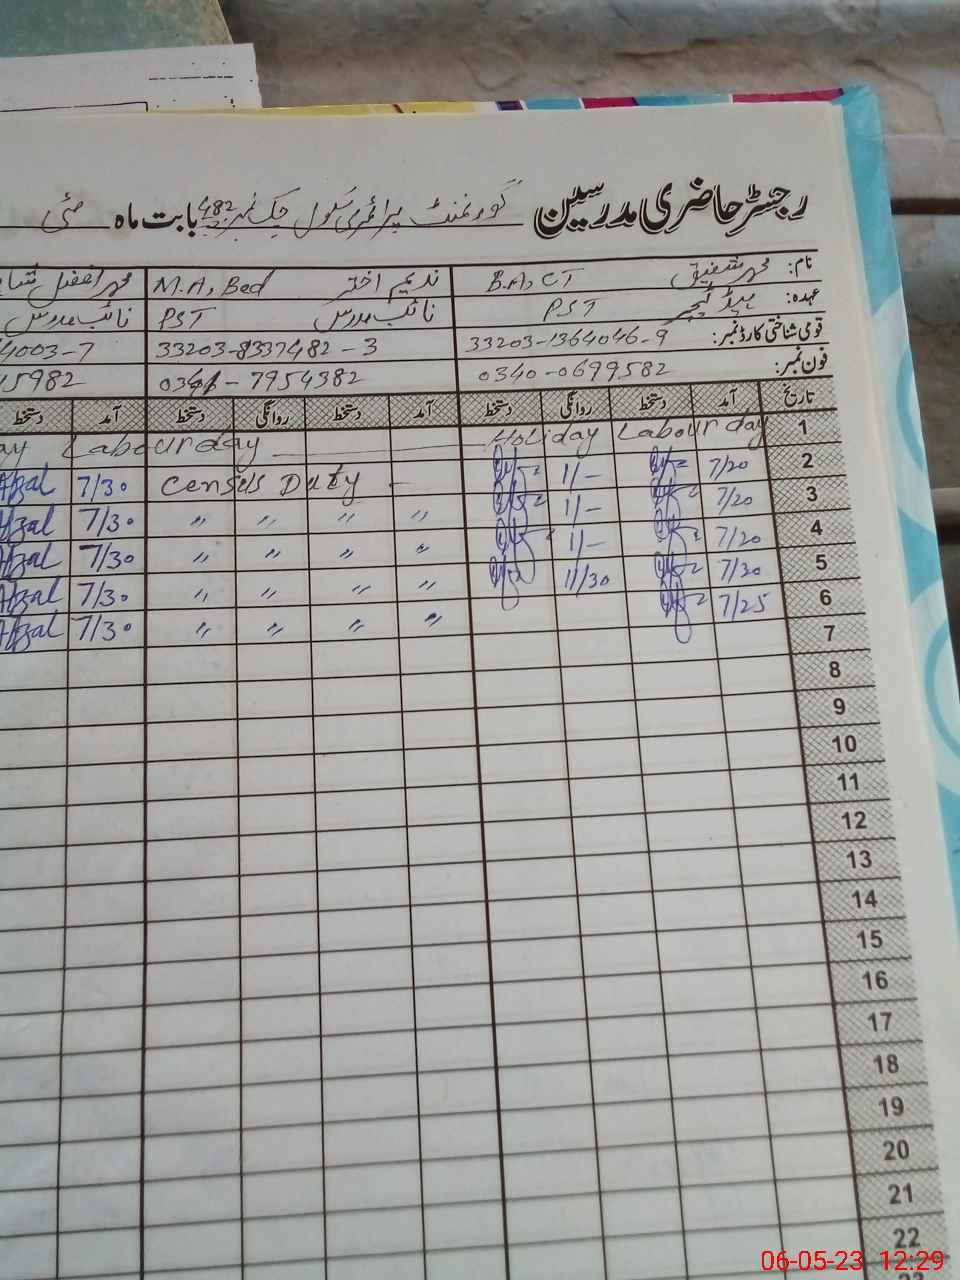 رجسٹر حاضری مدرسین گورنمنٹ پرائمری سکول چک نمبر 482 بابت ماہ مئی
نام: محمد شفیق B.A, CT ندیم اختر M.A, Bed محمد افضل
عہدہ: ہیڈ ٹیچر PST نائب مدرس PST نائب مدرس
قومی شناختی کارڈ نمبر: 33203-1364046-9 33203-8337482-3 4003-7
فون نمبر: 0340-0699582 0341-7954382 15982
تاریخ آمد دستخط روانگی دستخط آمد دستخط روانگی دستخط آمد دستخط
1 Holiday Labour day Labour day
2 7/20 1/- Census Duty - 7/30 Afzal
3 7/20 1/- " " " " 7/30 Afzal
4 7/20 1/- " " " " 7/30 Afzal
5 7/30 11/30 " " " " 7/30 Afzal
6 7/25 " " " " 7/30 Afzal
7
8
9
10
11
12
13
14
15
16
17
18
19
20
21
22
06-05-23 12:29